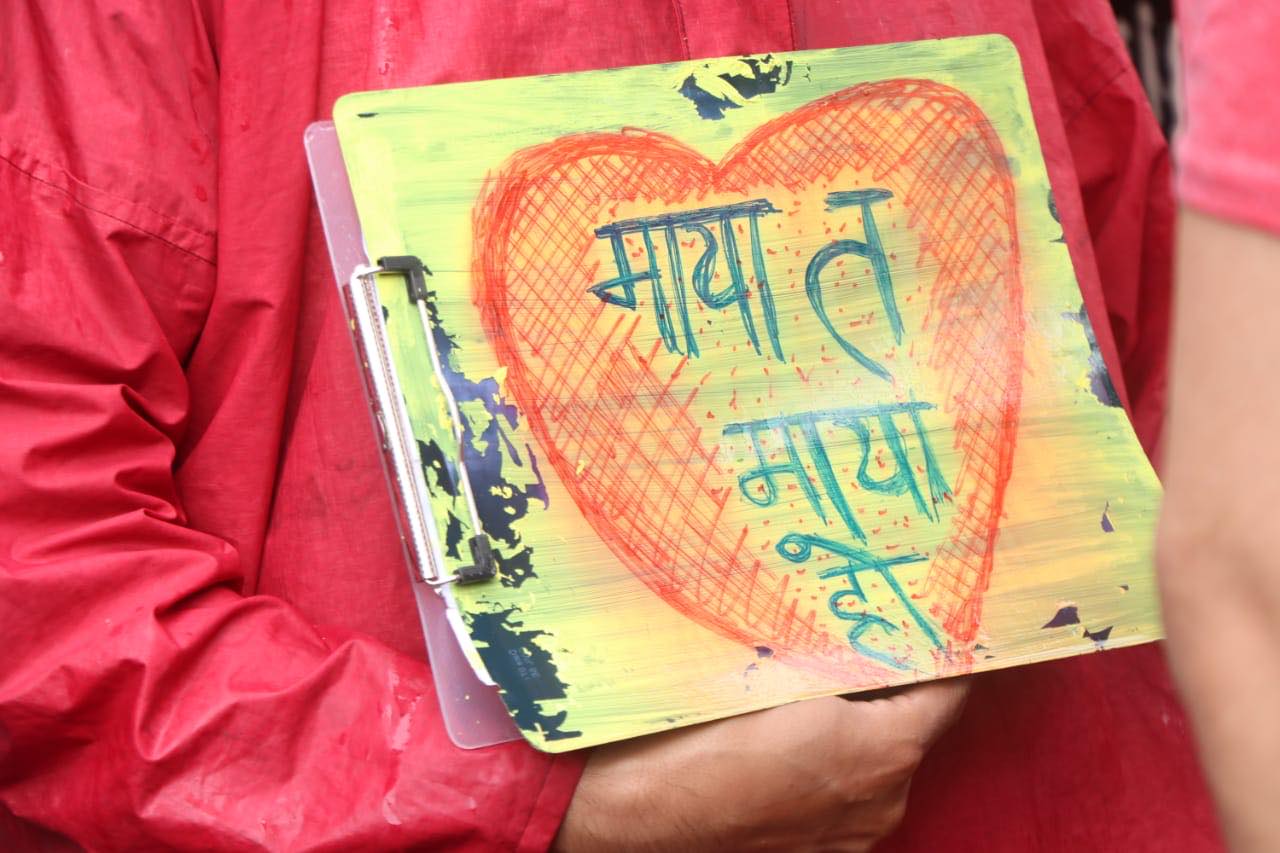 माया त
माया
हो